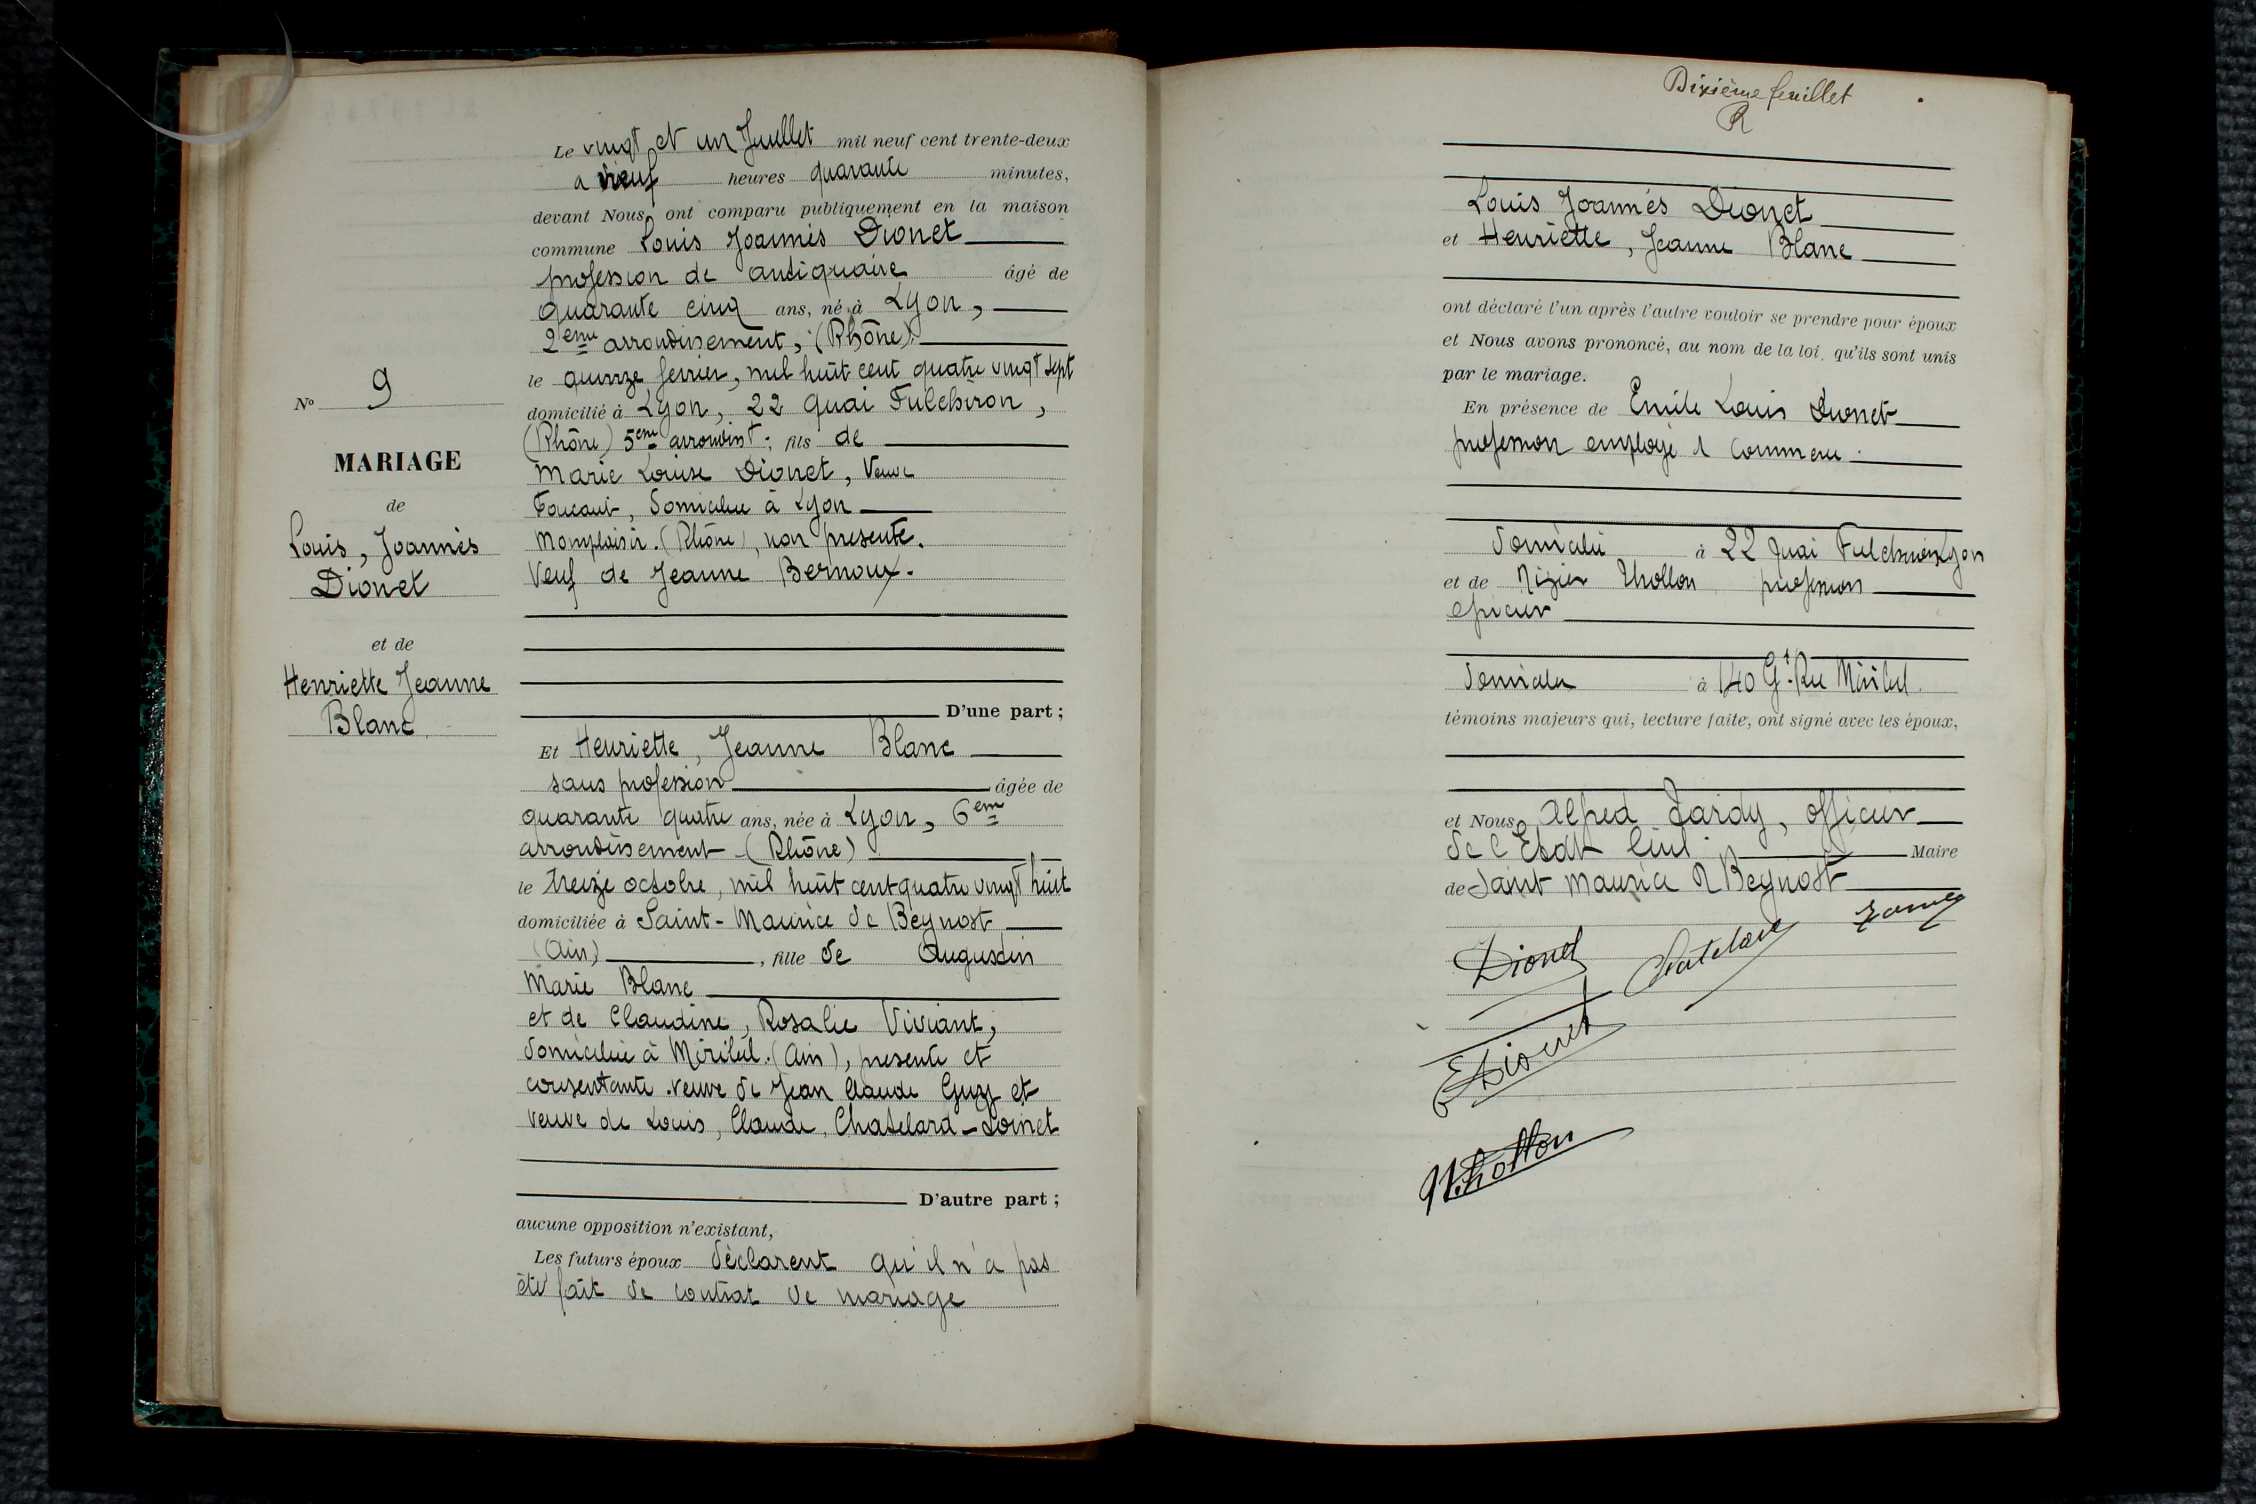 Le vingt et un Juillet mil neuf cent trente-deux
a neuf heures quarante minutes,
devant Nous, ont comparu publiquement en la maison
commune Louis Joannès Dionet
profession de antiquaire âgé de
quarante cinq ans, né à Lyon,
2ème arrondissement, (Rhône)
le quinze fevrier, mil huit cent quatre vingt sept
domicilié à Lyon, 22 quai Fulchiron,
(Rhône) 5ème arrondist; fils de
Marie Louise Dionet, Veuve
Foucaut, domiciliée à Lyon
Momplaisir. (Rhône), non presente.
Veuf de Jeanne Bernoux.
D'une part;
Et Henriette, Jeanne Blanc
sans profession âgée de
quarante quatre ans, née à Lyon, 6em
arrondissement (Rhône)
le treize octobre, mil huit cent quatre vingt huit
domiciliée à Saint-Maurice de Beynost
(Ain), fille de Augustin
Marie Blanc
et de Claudine, Rosalie Viviant,
domiciliée à Miribel. (Ain), presente et
consentante. veuve de Jean Claude Guy et
veuve de Louis, Claude, Chatelard-Loinet
D'autre part;
aucune opposition n'existant,
Les futurs époux déclarent qu'il n'a pas
été fait de contrat de mariage
No 9
MARIAGE
de
Louis, Joannès
Dionet
et de
Henriette Jeanne
Blanc
Dixième feuillet
R
Louis Joannès Dionet
et Henriette, Jeanne Blanc
ont déclaré l'un après l'autre vouloir se prendre pour époux
et Nous avons prononcé, au nom de la loi, qu'ils sont unis
par le mariage.
En présence de Emile Louis Dionet
profession employé d commerce
domicilié à 22 quai Fulchiron Lyon
et de Nizier Thollon profession
epicier
domicilié à 140 Gde Rue Miribel
témoins majeurs qui, lecture faite, ont signé avec les époux,
et Nous, Alfred Tardy, officier
de l'Etat Civil Maire
de Saint Maurice d Beynost
Dionet Chatelard
EDionet
NThollon